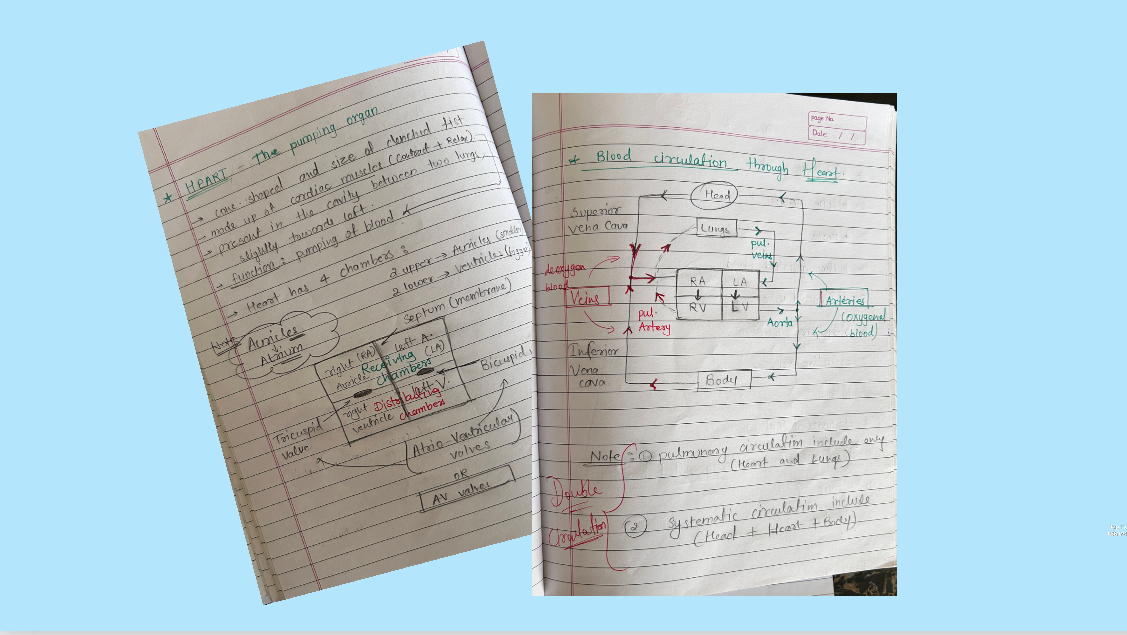 * HEART - The pumping organ
→ cone shaped and size of clenched fist
→ made up of cardiac muscles (Contract + Relax)
→ present in the cavity between two lungs
slightly towards left.
→ function : pumping of blood
→ Heart has 4 chambers :
2 upper → Auricles (smaller
2 lower → ventricles (bigger
Note
Auricles
↓
Atrium
Septum (membrane)
right (RA)
Auricle
left A.
(LA)
Receiving
chambers
Bicuspid
left V.
Distributing
chambers
right
ventricle
Tricuspid
valve
Atrio Ventricular
volves
OR
AV valves
Page No.
Date / /
* Blood circulation through Heart.
Head
Superior
Vena Cava
Lungs
pul.
veins
deoxygen
blood
Veins
RA
LA
RV
LV
pul.
Artery
Aorta
Arteries
(oxygenal
blood)
Inferior
Vena
cava
Body
Note := ① pulmunory circulatim include only
(Heart and Lungs)
Double
Circulation
② Systematic circulatim include
(Head + Heart + Body)